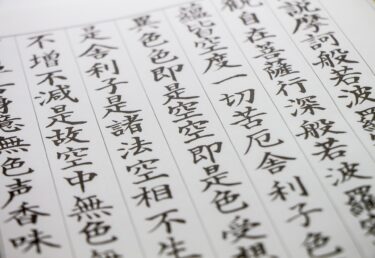 説摩訶般若波羅
観自在菩薩行深般若波羅
皆空度一切苦厄舎利子色
異色色即是空空即是色受想
是舎利子是諸法空相不生
不増不減是故空中無色
身意無色声香味